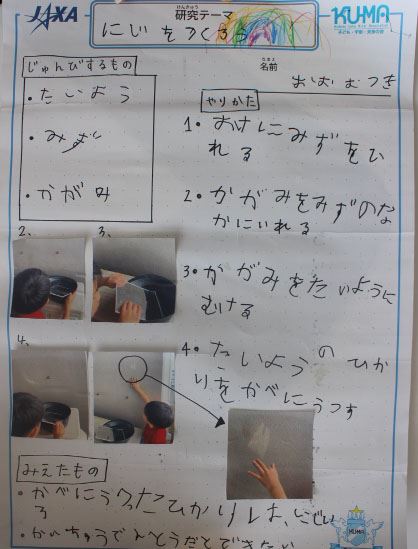 JAXA
けんきゅう
研究テーマ
KUMA
子ども・宇宙・未来の会
にじをつくろう
なまえ
名前
おおむつき
じゅんびするもの
・たいよう
・みず
・かがみ
やりかた
1・おけにみずをい
れる
2・かがみをみずのな
かにいれる
3・かがみをたいように
むける
4・たいようのひか
りをかべにうつす
2、
3、
4、
みえたもの
・かべにうつったひかりは、にじい
ろ
KUMA